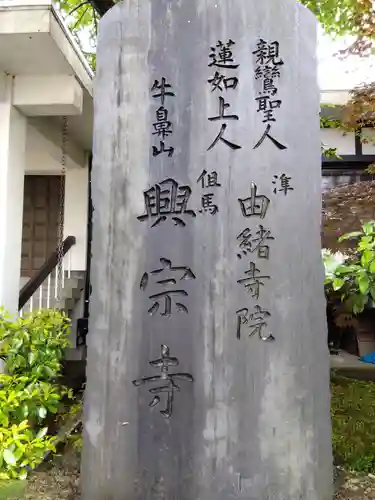 親鸞聖人
蓮如上人
準
由緒寺院
但馬
牛鼻山
興宗寺